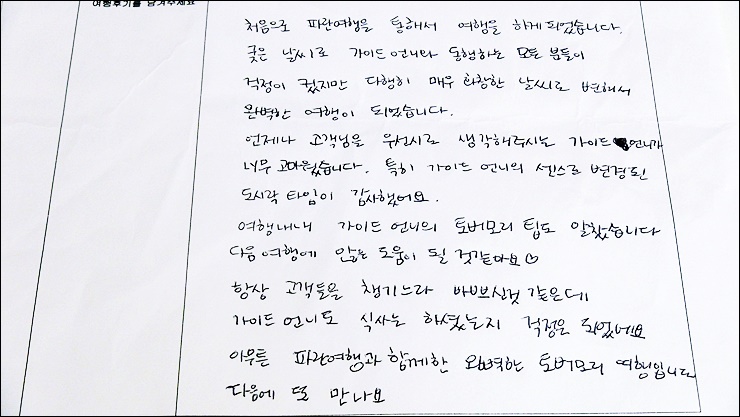 여행후기를 남겨주세요
처음으로 파란여행을 통해서 여행을 하게 되었습니다.
궂은 날씨로 가이드 언니와 동행하는 모든 분들이
걱정이 컸지만 다행히 매우 화창한 날씨로 변해서
완벽한 여행이 되었습니다.
언제나 고객님을 우선시로 생각해주시는 가이드 언니가
너무 고마웠습니다. 특히 가이드 언니의 센스로 변경된
도시락 타임이 감사했어요.
여행내내 가이드 언니의 토버모리 팁도 알찼습니다
다음 여행에 많은 도움이 될 것같아요♡
항상 고객들을 챙기느라 바쁘신것 같은데
가이드 언니도 식사는 하셨는지 걱정은 되었네요
아무튼 파란여행과 함께한 완벽한 토버모리 여행입니다
다음에 또 만나요